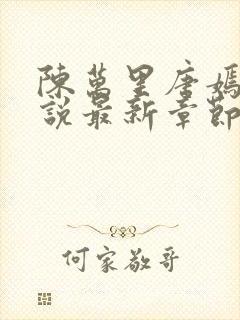 陳萬里唐嫣
說最新章節
何家敬哥